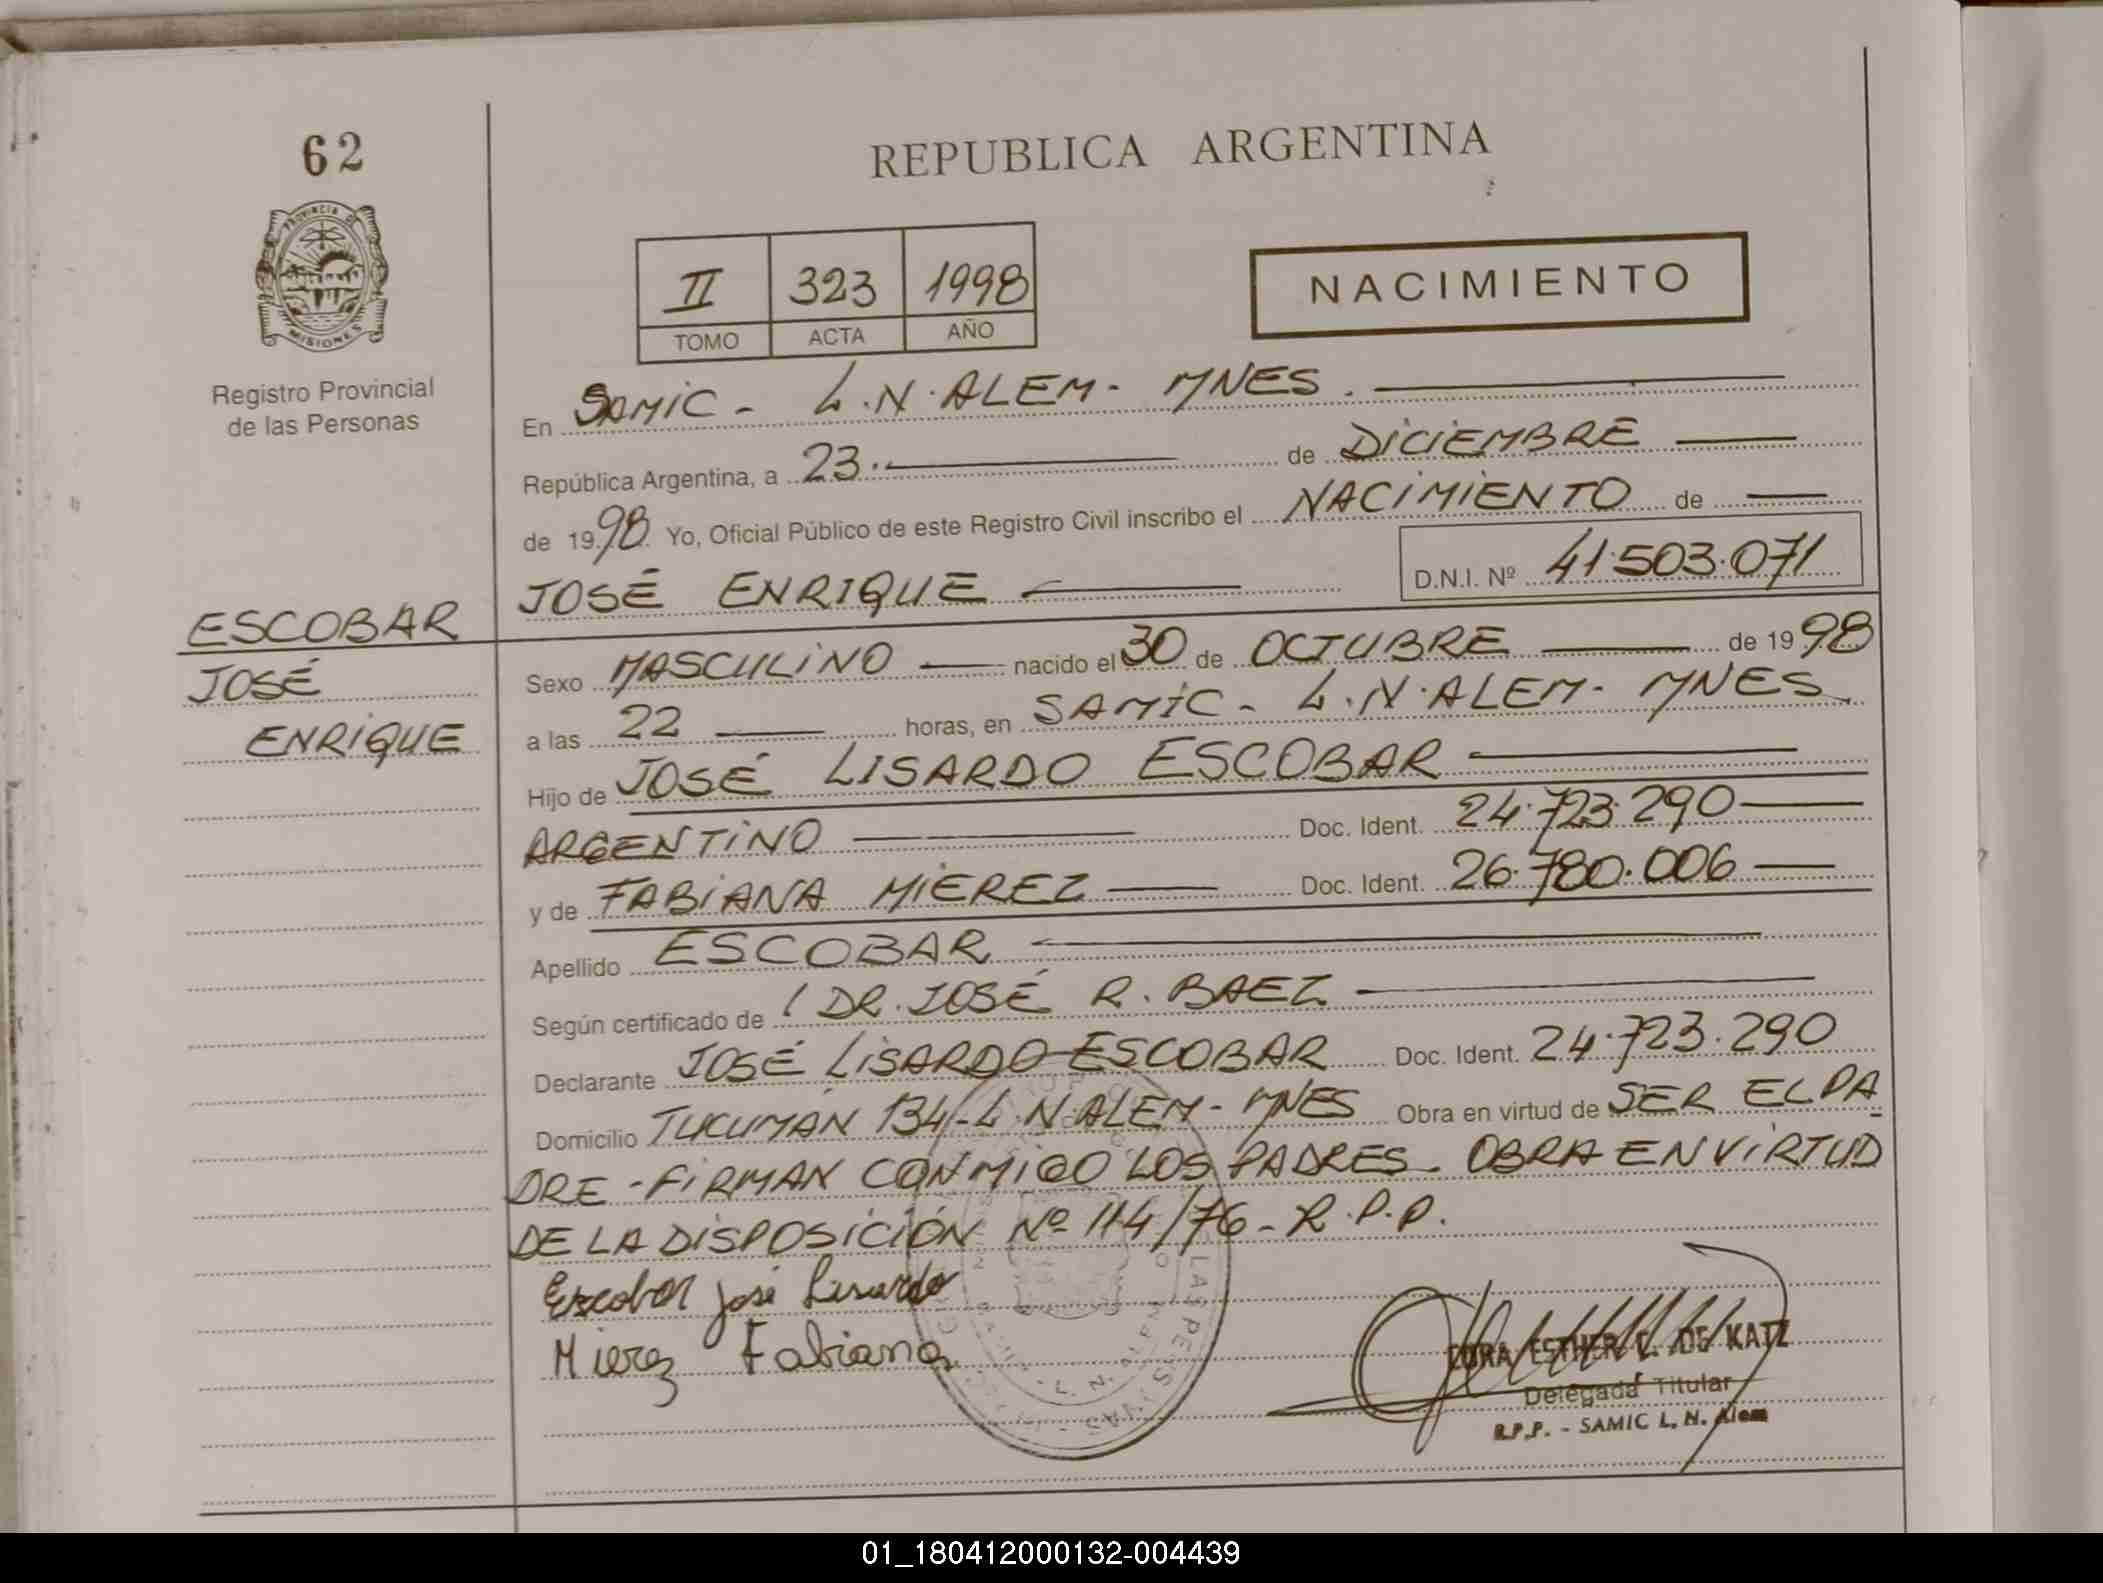 62
REPUBLICA ARGENTINA
PROVINCIA DE
MISIONES
II 323 1998
TOMO ACTA AÑO
NACIMIENTO
Registro Provincial
de las Personas
En SAMIC - L.N. ALEM - MNES.
República Argentina, a 23. de DICIEMBRE
de 1998. Yo, Oficial Público de este Registro Civil inscribo el NACIMIENTO de
JOSÉ ENRIQUE D.N.I. Nº 41.503.071
ESCOBAR
JOSÉ
ENRIQUE
Sexo MASCULINO nacido el 30 de OCTUBRE de 1998
a las 22 horas, en SAMIC - L.N. ALEM - MNES
Hijo de JOSÉ LISARDO ESCOBAR
ARGENTINO Doc. Ident. 24.723.290
y de FABIANA MIEREZ Doc. Ident. 26.780.006
Apellido ESCOBAR
Según certificado de / DR. JOSÉ R. BAEZ
Declarante JOSÉ LISARDO ESCOBAR Doc. Ident. 24.723.290
Domicilio TUCUMÁN 134 - L.N. ALEM - MNES Obra en virtud de SER EL PA
DRE - FIRMAN CONMIGO LOS PADRES. OBRA EN VIRTUD
DE LA DISPOSICIÓN Nº 114/76 - R.P.P.
Escobar José Lisardo
Mierez Fabiana
ESTHER DE KATZ
Delegada Titular
R.P.P. - SAMIC L. N. Alem
01_180412000132-004439